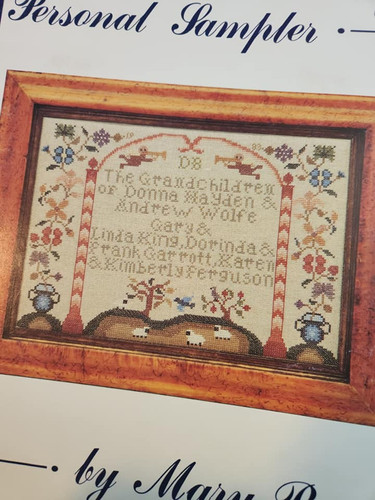 Personal Sampler
DB
The Grandchildren
of Donna Hayden &
Andrew Wolfe
Gary &
Linda King, Dorinda &
Frank Garrott, Karen
& Kimberly Ferguson
by Mary